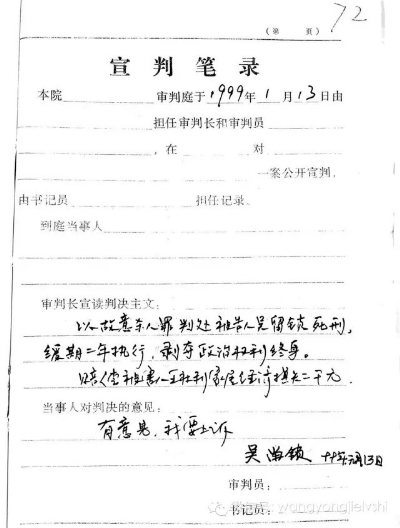 72
（第 页）
宣判笔录
本院 审判庭于1999年1月13日由
担任审判长和审判员
，在 对
一案公开宣判。
由书记员 担任记录。
到庭当事人
审判长宣读判决主文：
以故意杀人罪判处被告人吴留锁死刑，
缓期二年执行，剥夺政治权利终身。
赔偿被害人王胜利家属经济损失二千元
当事人对判决的意见：
有意见，我要上诉
吴留锁 99年元月13日
审判员：
书记员：
yangyongjielvshi